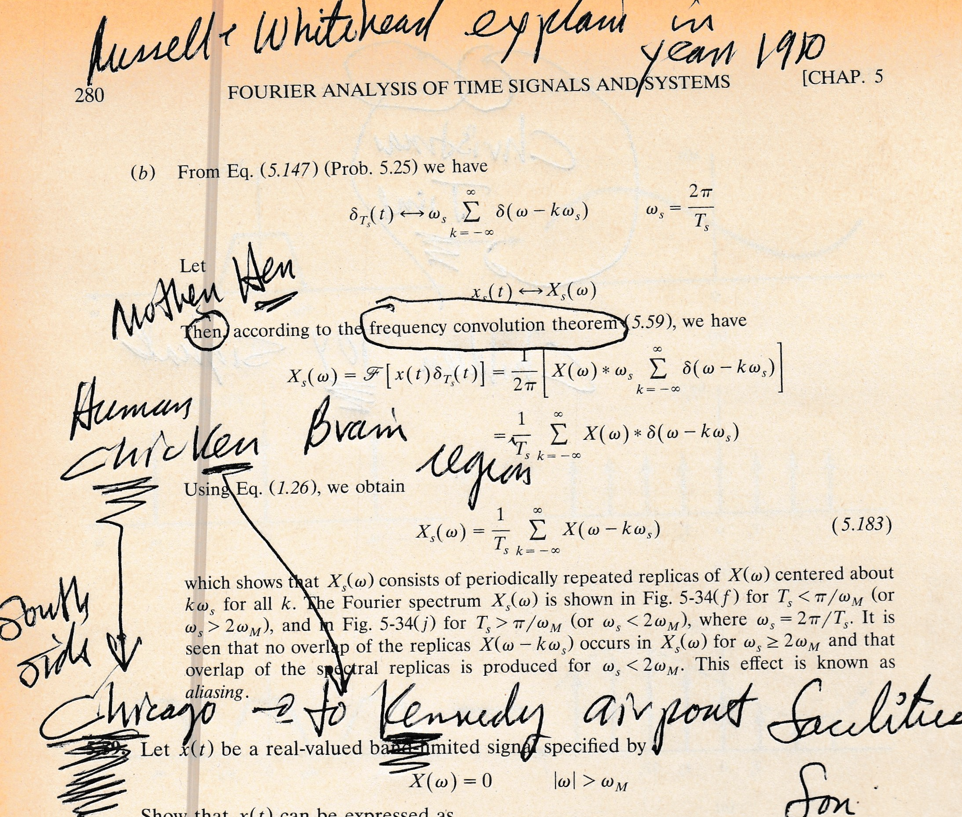 Russell + Whitehead explain in
year 1910
280 FOURIER ANALYSIS OF TIME SIGNALS AND SYSTEMS [CHAP. 5
(b) From Eq. (5.147) (Prob. 5.25) we have
δ_{T_s}(t) ↔ ω_s ∑_{k=-∞}^{∞} δ(ω − kω_s) ω_s = 2π/T_s
Let
Mother Hen
x_s(t) ↔ X_s(ω)
Then, according to the frequency convolution theorem (5.59), we have
X_s(ω) = ℱ[x(t)δ_{T_s}(t)] = 1/2π [X(ω) * ω_s ∑_{k=-∞}^{∞} δ(ω − kω_s)]
Human
Chicken Brain
= 1/T_s ∑_{k=-∞}^{∞} X(ω) * δ(ω − kω_s)
region
Using Eq. (1.26), we obtain
X_s(ω) = 1/T_s ∑_{k=-∞}^{∞} X(ω − kω_s) (5.183)
which shows that X_s(ω) consists of periodically repeated replicas of X(ω) centered about
kω_s for all k. The Fourier spectrum X_s(ω) is shown in Fig. 5-34(f) for T_s < π/ω_M (or
ω_s > 2ω_M), and in Fig. 5-34(j) for T_s > π/ω_M (or ω_s < 2ω_M), where ω_s = 2π/T_s. It is
seen that no overlap of the replicas X(ω − kω_s) occurs in X_s(ω) for ω_s ≥ 2ω_M and that
overlap of the spectral replicas is produced for ω_s < 2ω_M. This effect is known as
aliasing.
South
side
Chicago → to Kennedy airport facilities
5.59. Let x(t) be a real-valued band-limited signal specified by
X(ω) = 0 |ω| > ω_M
for
Show that x(t) can be expressed as